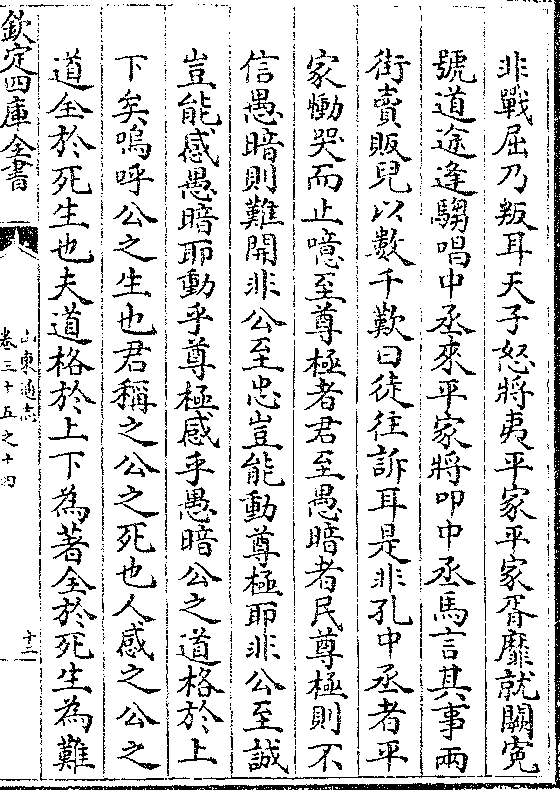 非戰屈乃叛耳天子怒將夷平家平家胥靡就闕寃
號道途逢騶唱中丞來平家將叩中丞馬言其事兩
街賣販兒以數千歎曰徒往訴耳是非孔中丞者平
家慟哭而止噫至尊極者君至愚暗者民尊極則不
信愚暗則難開非公至忠豈能動尊極耶非公至誠
豈能感愚暗耶動乎尊極感乎愚暗公之道格於上
下矣嗚呼公之生也君稱之公之死也人感之公之
道全於死生也夫道格於上下為著全於死生為難
欽定四庫全書
山東通志
卷三十五之十四
十二